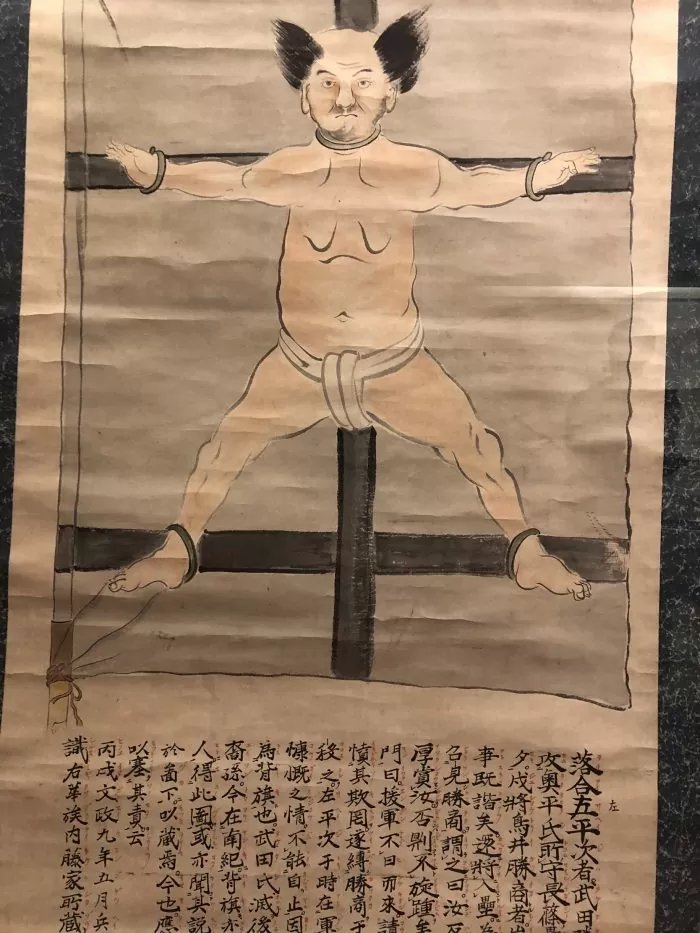 左
落合五平次者武田
攻奥平氏所守長篠
夕戍將鳥井勝商者
事既諧矣還將入壘
召見勝商謂之曰汝
厚賞汝否則不旋踵
門曰援軍不日而來請
憤其欺罔遂縛勝商于
殺之左平次于時在軍
慷慨之情不能自止因
為背旗也武田氏滅後
裔孫今在南紀背旗亦
人得此圖或亦聞其説
於啚下以蔵焉今也應
以塞其責云
丙戌文政九年五月兵
識右華族内藤家所蔵